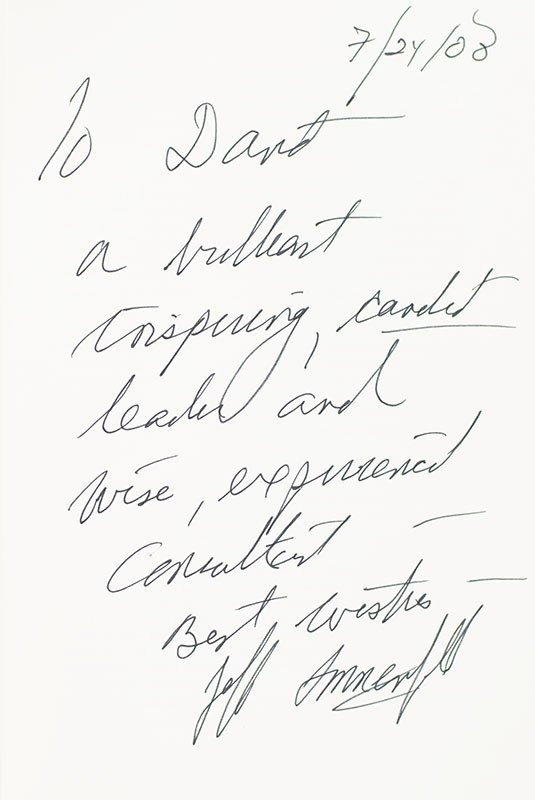 7/24/08
To David
a brilliant
inspiring, candid
leader and
wise, experienced
consultant —
Best wishes —
Jeff